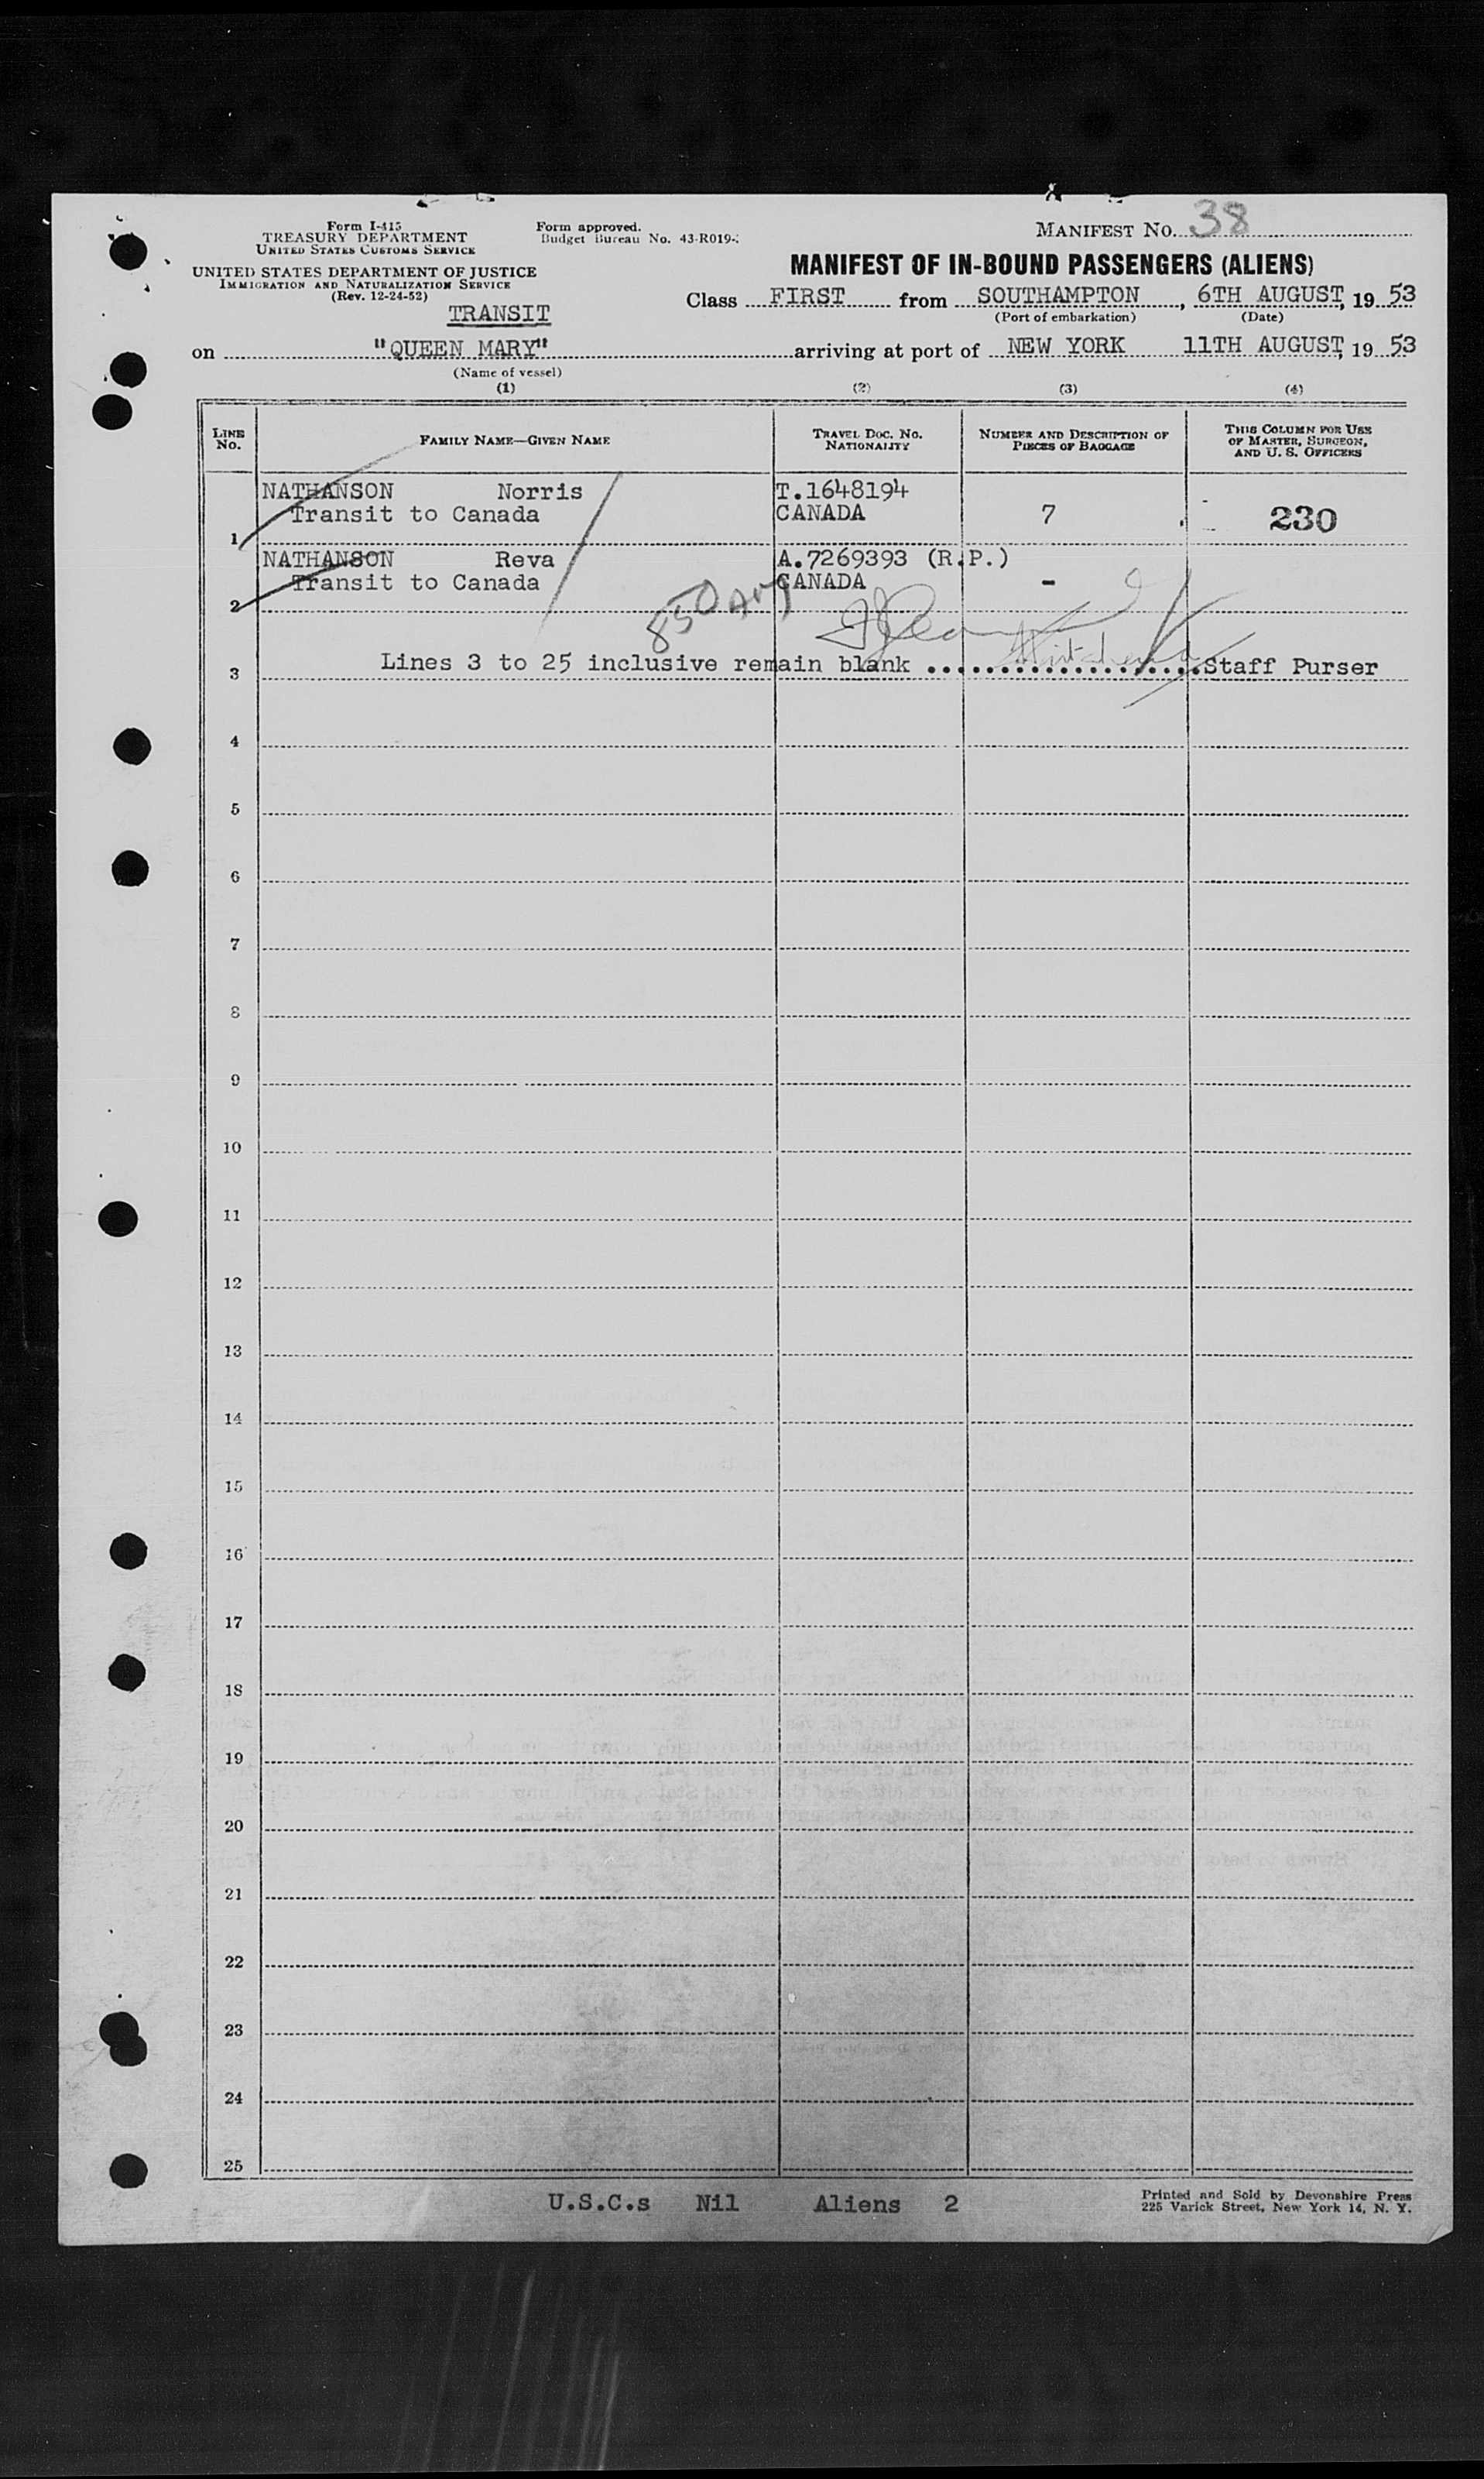 Form I-415
TREASURY DEPARTMENT
UNITED STATES CUSTOMS SERVICE
UNITED STATES DEPARTMENT OF JUSTICE
IMMIGRATION AND NATURALIZATION SERVICE
(Rev. 12-24-52)
Form approved.
Budget Bureau No. 43-R019-
MANIFEST No. 38
MANIFEST OF IN-BOUND PASSENGERS (ALIENS)
TRANSIT
Class FIRST from SOUTHAMPTON, 6TH AUGUST, 19 53
(Port of embarkation) (Date)
on "QUEEN MARY" arriving at port of NEW YORK 11TH AUGUST, 19 53
(Name of vessel)
(1) (2) (3) (4)
LINE No. FAMILY NAME—GIVEN NAME TRAVEL DOC. NO. NATIONALITY NUMBER AND DESCRIPTION OF PIECES OF BAGGAGE THIS COLUMN FOR USE OF MASTER, SURGEON, AND U. S. OFFICERS
NATHANSON Norris T.1648194
1 Transit to Canada CANADA 7 230
NATHANSON Reva A.7269393 (R.P.)
2 Transit to Canada CANADA -
850
3 Lines 3 to 25 inclusive remain blank ................... Staff Purser
4
5
6
7
8
9
10
11
12
13
14
15
16
17
18
19
20
21
22
23
24
25
U.S.C.s Nil Aliens 2
Printed and Sold by Devonshire Press
225 Varick Street, New York 14, N. Y.